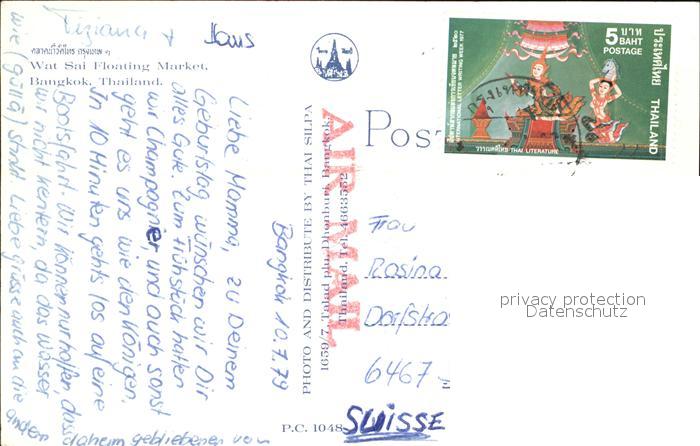 Tiziana + Hans
ตลาดน้ำวัดไทร กรุงเทพ ฯ
Wat Sai Floating Market,
Bangkok, Thailand.
Bangkok 10.7.79
Liebe Mamma, zu Deinem
Geburtstag wünschen wir Dir
alles Gute. Zum Frühstück hatten
wir Champagner, und auch sonst
geht es uns wie den Königen.
In 10 Minuten gehts los auf eine
Bootsfahrt. Wir können nur hoffen, dass
wir nicht kentern, da das Wasser
wie (gülä) stinkt. Liebe grüsse auch an die
andern daheimgebliebenen von
PHOTO AND DISTRIBUTE BY THAI SILPA
Thailand. Tel.
P.C. 1048
AIR MAIL
Post
5 บาท
BAHT
POSTAGE
ประเทศไทย
THAILAND
INTERNATIONAL LETTER WRITING WEEK 1977
วรรณคดีไทย THAI LITERATURE
Frau
Rosina
Dorfstra
6467
SUISSE
privacy protection
Datenschutz